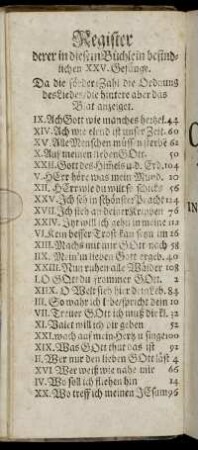 Register
derer in diesem Büchlein befind-
lichen XXV. Gesänge.
Da die förder-Zahl die Ordnung
des Liedes/die hintere aber das
Blat anzeiget.
IX. Ach Gott wie manches hertzel. 44
XIV. Ach wie elend ist unser Zeit. 60
XV. Alle Menschen müss'n sterbē 62
X. Auf meinen lieben GOtt. 50
XXII. Gott des Himels u. d. Erd. 104
V. HErr höre was mein Mund. 20
XII. HErr wie du wilt so schicks 56
XXV. Ich
VII. Ich steh an deiner Krippen 76
XXIV. Ihr will ich
VI. Kein besser Trost kan seyn im 26
XIII. Machs mit mir GOtt nach 58
IIX. Mein'n lieben Gott ergeb. 40
XXIII. Nun ruhen alle Wälder 108
I. O GOtt du frommer GOtt. 2
XXIX. O Welt sieh hier
III. So wahr ich lebe spricht dein 10
VII. Treuer GOtt ich muß dir kl. 32
XI. Valet will ich dir geben 52
XXI. wach auf mein Hertz u singe 100
XIX. Was GOtt thut das ist 92
II. Wer nur den lieben GOtt läst 4
XVI. Wer weiß wie nahe mir 66
IV. Wo soll ich fliehen hin 14
XX. Wo treff ich meinen JEsum 96